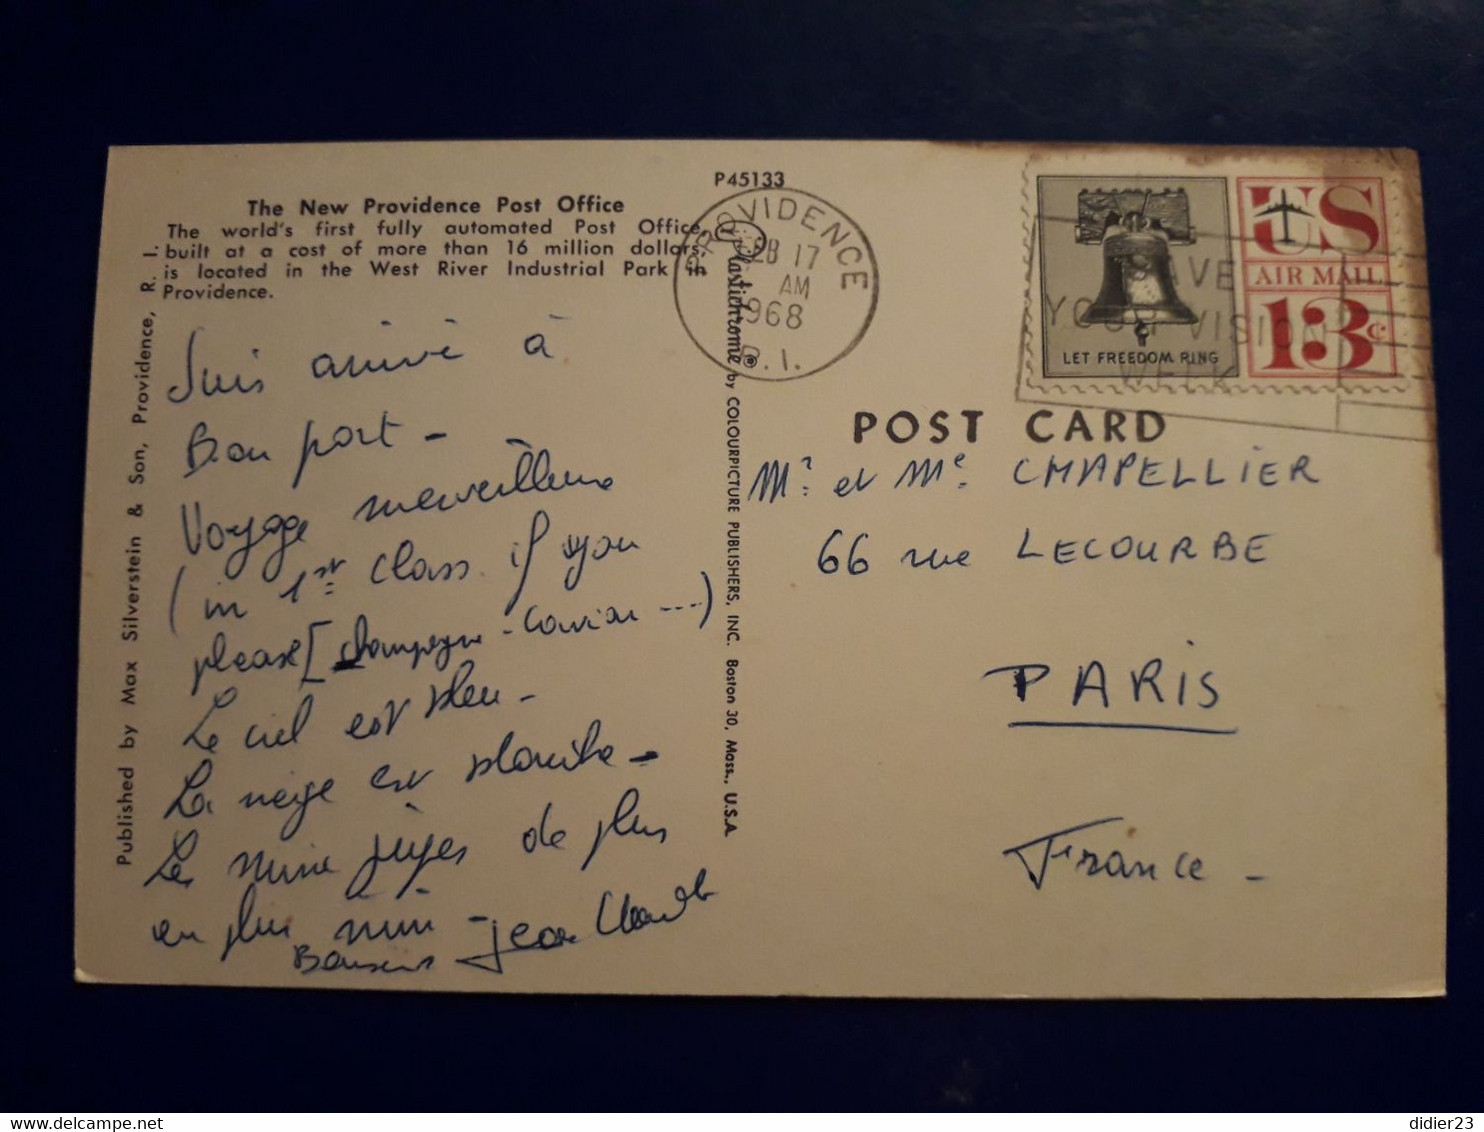 P45133
The New Providence Post Office
The world's first fully automated Post Office,
built at a cost of more than 16 million dollars,
is located in the West River Industrial Park in
Providence.
Suis arrivé à
Bon port -
Voyage merveilleux
(in 1st class if you
please [champagne - caviar ----)
Le ciel est bleu -
La neige est blanche -
Les mini jupes de plus
en plus mini -
Jean Claude
Published by Max Silverstein & Son, Providence, R. I.
Plastichrome ® by COLOURPICTURE PUBLISHERS, INC. Boston 30, Mass., U.S.A.
PROVIDENCE
FEB 17
AM
1968
R.I.
LET FREEDOM RING
US
AIR MAIL
13c
SAVE
YOUR VISION
WEEK
POST CARD
Mr. et Me. CHAPELLIER
66 rue LECOURBE
PARIS
France -
didier23